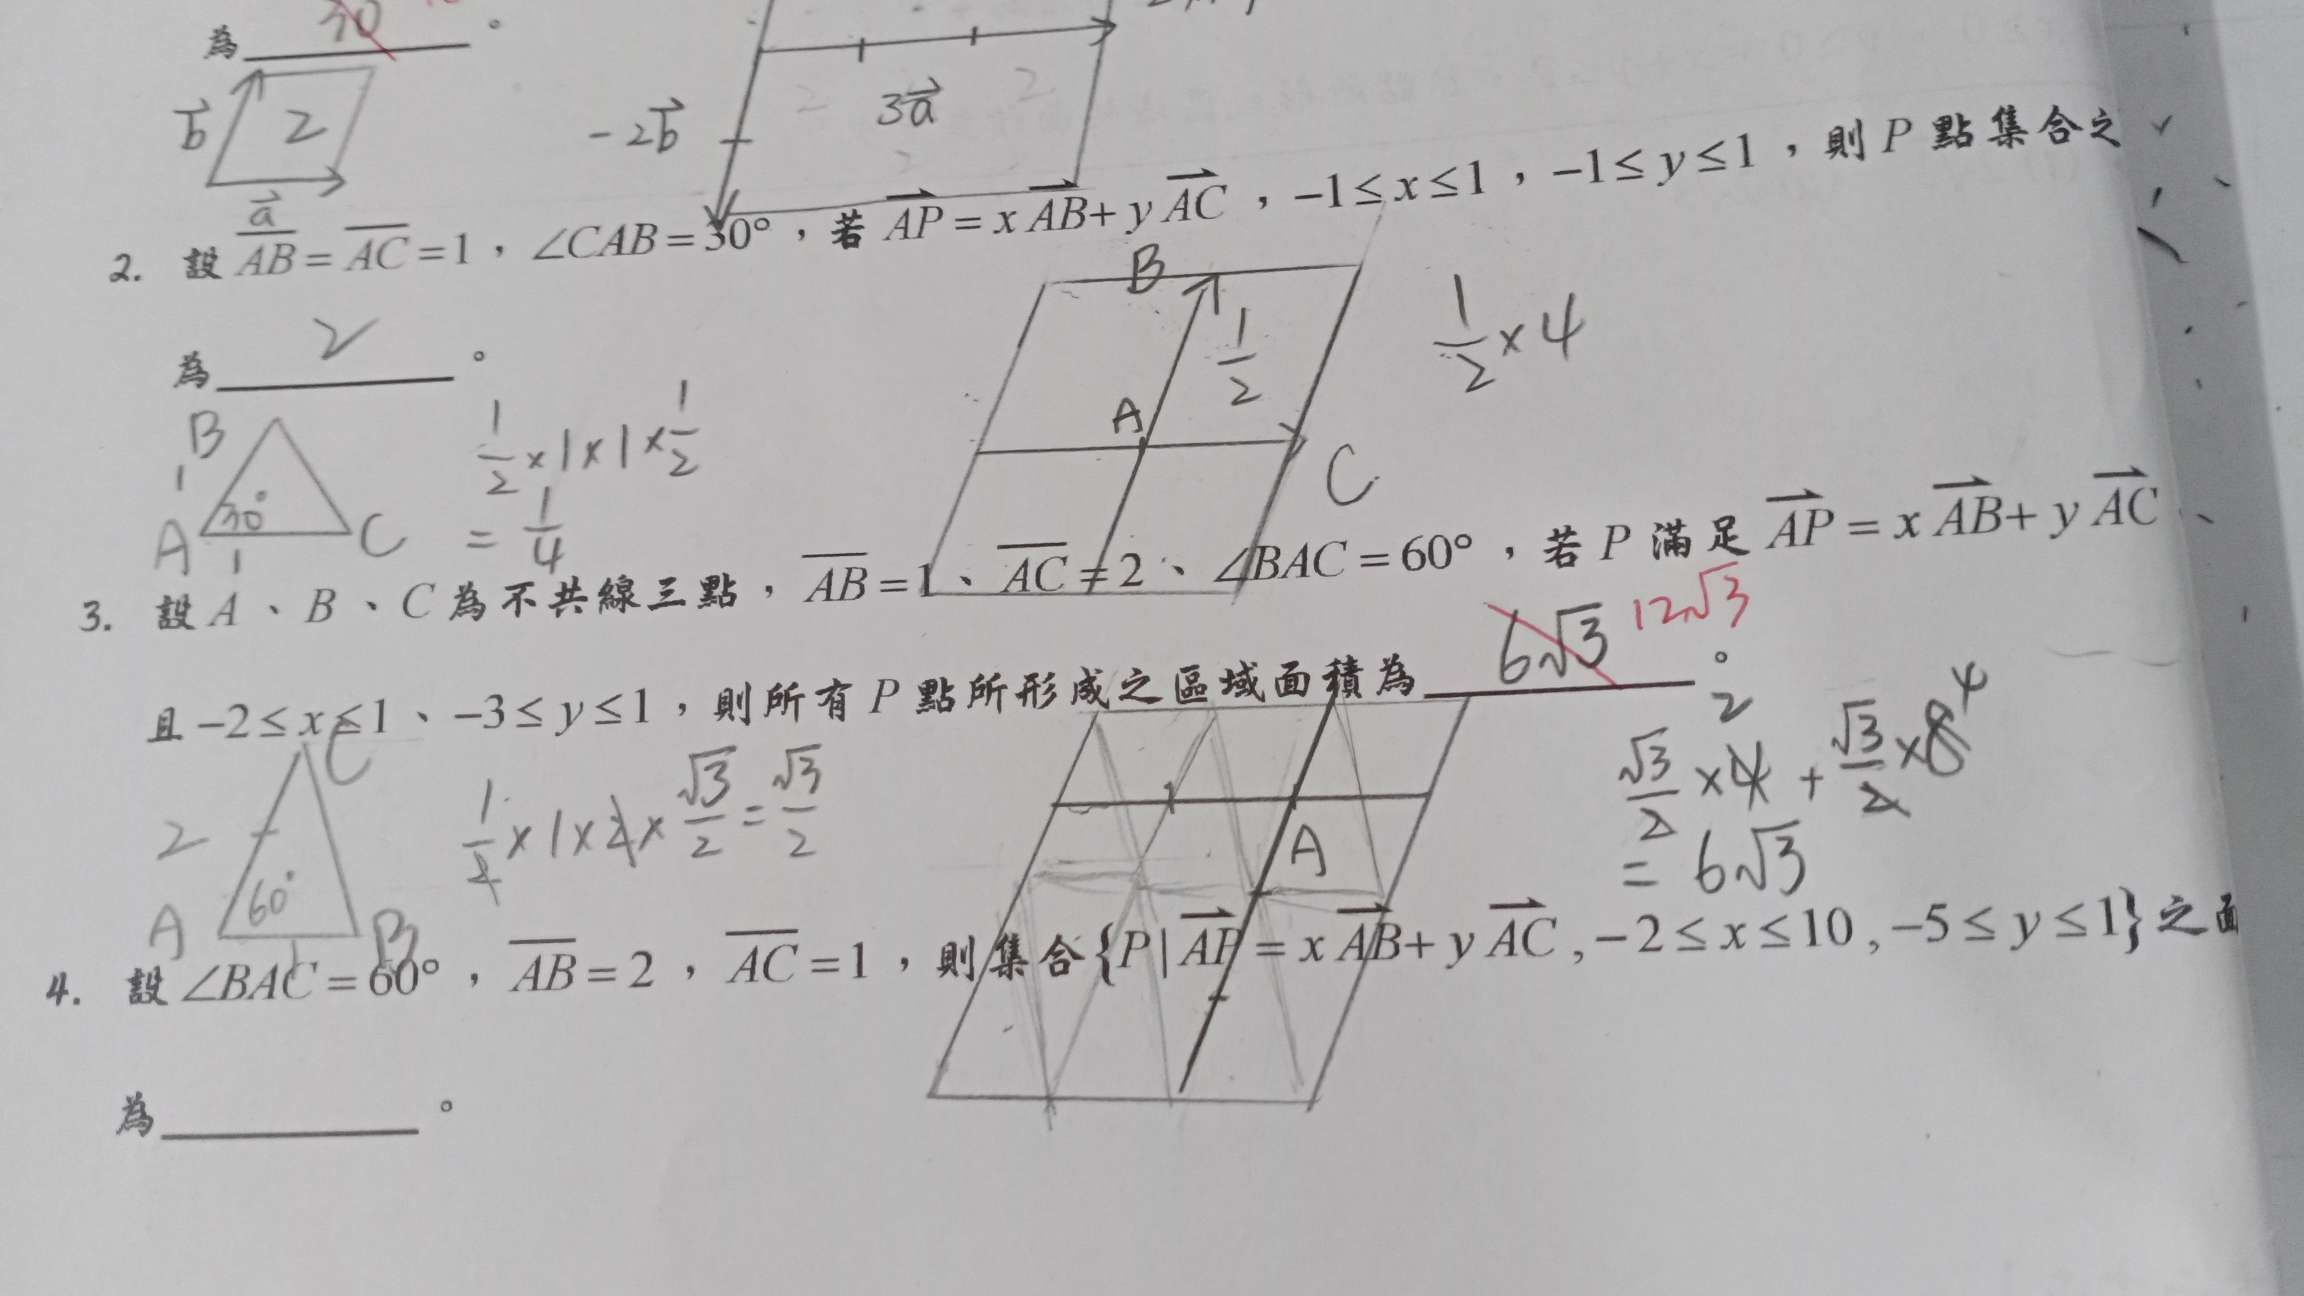 為 30 。
b 2 a
-2b 3a 2 2
2. 設 AB = AC = 1,∠CAB = 30°,若 AP = x AB + y AC,-1 ≤ x ≤ 1,-1 ≤ y ≤ 1,則 P 點集合之
為 2 。
B 1 A 30° 1 C
1/2 × 1 × 1 × 1/2
= 1/4
B A C 1/2
1/2 × 4
3. 設 A、B、C 為不共線三點,AB = 1、AC = 2、∠BAC = 60°,若 P 滿足 AP = x AB + y AC
且 -2 ≤ x ≤ 1、-3 ≤ y ≤ 1,則所有 P 點所形成之區域面積為 6√3 12√3 。
C 2 A 60° 1 B
1/2 × 1 × 2 × √3/2 = √3/2
A
√3/2 × 4 2 + √3/2 × 8 4
= 6√3
4. 設 ∠BAC = 60°,AB = 2,AC = 1,則集合 {P | AP = x AB + y AC , -2 ≤ x ≤ 10 , -5 ≤ y ≤ 1} 之面
為 。